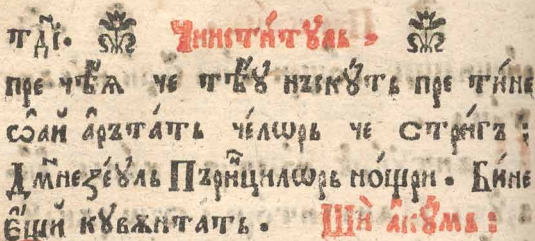 тді҃. Чинсти́тꙋль.
пре чѣ́ꙗ че тѣꙋ́ нъскꙋ́ть пре ти́не
сѡ̂ай а̂ръта́ть че́лѡрь че стри́гъ :
Дм҃незе́ꙋль Пъри́нцилѡрь но́щри. Би́не
Є҆́щй кꙋвѫнтать. Шѝ а̂кꙋ́мь :